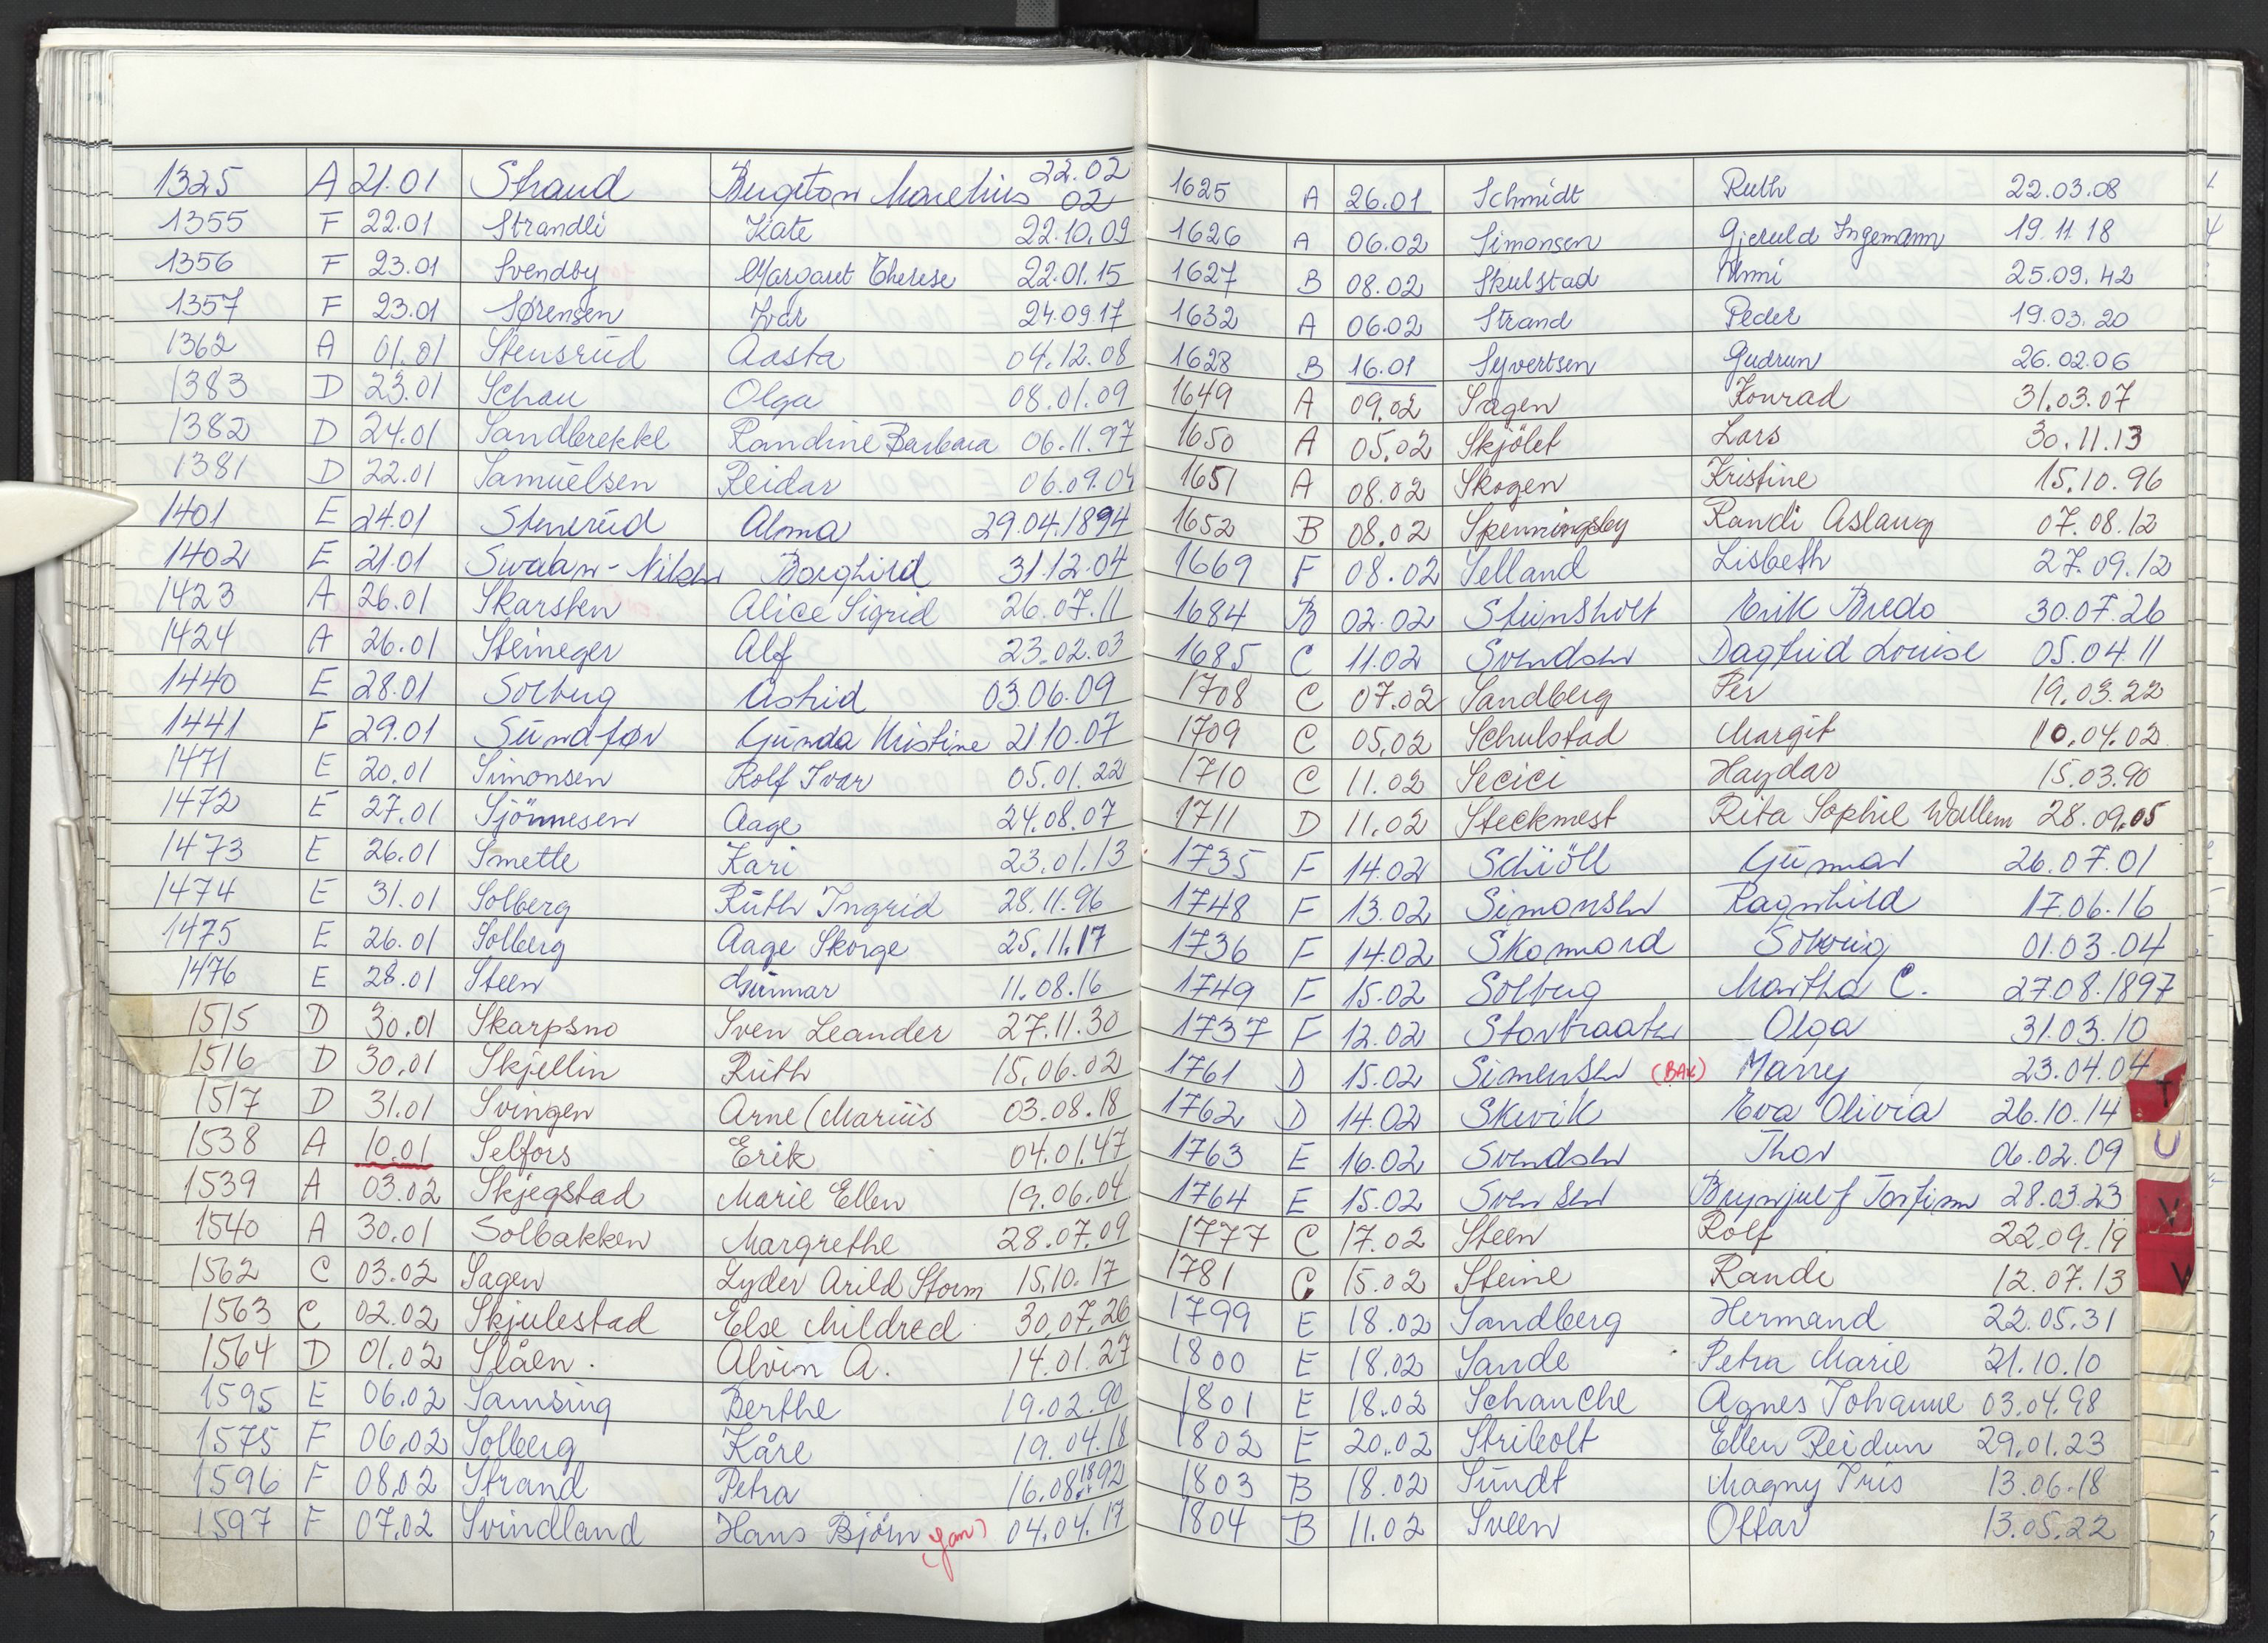 1325 A 21.01 Strand 22.02 02
1355 F 22.01 Strandli Kate 22.10.09
1356 F 23.01 Svendby Margaret Therese 22.01.15
1357 F 23.01 Sørensen Ivar 24.09.17
1362 A 01.01 Stensrud Aasta 04.12.08
1383 D 23.01 Schau Olga 08.01.09
1382 D 24.01 Sandbrekke Randine Barbara 06.11.97
1381 D 22.01 Samuelsen Reidar 06.09.04
1401 E 24.01 Stenerud Alma 29.04.1894
1402 E 21.01 Swaan-Nilsen Borghild 31.12.04
1423 A 26.01 Skarsten Alice Sigrid 26.07.11
1424 A 26.01 Steineger Alf 23.02.03
1440 E 28.01 Solberg Astrid 03.06.09
1441 F 29.01 Sundfør Gunda Kristine 21.10.07
1471 E 20.01 Simonsen Rolf Ivar 05.01.22
1472 E 27.01 Sjönnesen Aage 24.08.07
1473 E 26.01 Smette Kari 23.01.13
1474 E 31.01 Solberg Ruth Ingrid 28.11.96
1475 E 26.01 Solberg Aage Skorge 25.11.17
1476 E 28.01 Steen Gunnar 11.08.16
1515 D 30.01 Skarpsno Sven Leander 27.11.30
1516 D 30.01 Skjellin Ruth 15.06.02
1517 D 31.01 Svingen Arne (Marius 03.08.18
1538 A 10.01 Selfors Erik 04.01.47
1539 A 03.02 Skjegstad Marie Ellen 19.06.04
1540 A 30.01 Solbakken Margrethe 28.07.09
1562 C 03.02 Sagen Lyder Arild Storm 15.10.17
1563 C 02.02 Skjulestad Else Mildred 30.07.26
1564 D 01.02 Slåen. Alvin A. 14.01.27
1595 E 06.02 Samsing Berthe 19.02.90
1575 F 06.02 Solberg Kåre 19.04.18
1596 F 08.02 Strand Petra 16.08.1892
1597 F 07.02 Svindland Hans Bjørn (Jan) 04.04.17
1625 A 26.01 Schmidt Ruth 22.03.08
1626 A 06.02 Simonsen Gjeruld Ingemann 19.11.18
1627 B 08.02 Skulstad Unni 25.09.42
1632 A 06.02 Strand Peder 19.03.20
1628 B 16.01 Syvertsen Gudrun 26.02.06
1649 A 09.02 Sagen Konrad 31.03.07
1650 A 05.02 Skjölet Lars 30.11.13
1651 A 08.02 Skogen Kristine 15.10.96
1652 B 08.02 Spenningsby Randi Aslaug 07.08.12
1669 F 08.02 Selland Lisbeth 27.09.12
1684 B 02.02 Steinsholt Erik Bredo 30.07.26
1685 C 11.02 Svendsen Dagfrid Louise 05.04.11
1708 C 07.02 Sandberg Per 19.03.22
1709 C 05.02 Schulstad Margit 10.04.02
1710 C 11.02 Secici Haydar 15.03.90
1711 D 11.02 Steckmest Rita Sophie Wallem 28.09.05
1735 F 14.02 Schiöll Gunnar 26.07.01
1748 F 13.02 Simonsen Ragnhild 17.06.16
1736 F 14.02 Skomnord Solveig 01.03.04
1749 F 15.02 Solberg Martha C. 27.08.1897
1737 F 12.02 Stortraaten Olga 31.03.10
1761 D 15.02 Simensen (BAK) Marry 23.04.04
1762 D 14.02 Skivik Eva Olivia 26.10.14
1763 E 16.02 Svendsen Thor 06.02.09
1764 E 15.02 Svensen Brynjulf Torfinn 28.03.23
1777 C 17.02 Steen Rolf 22.09.19
1781 C 15.02 Steine Randi 12.07.13
1799 E 18.02 Sandberg Hermand 22.05.31
1800 E 18.02 Sande Petra Marie 21.10.10
1801 E 18.02 Schanche Agnes Johanne 03.04.98
1802 E 20.02 Stribolt Ellen Reidun 29.01.23
1803 B 18.02 Sundt Magny Iris 13.06.18
1804 B 11.02 Sveen Ottar 13.05.22
T
U
V